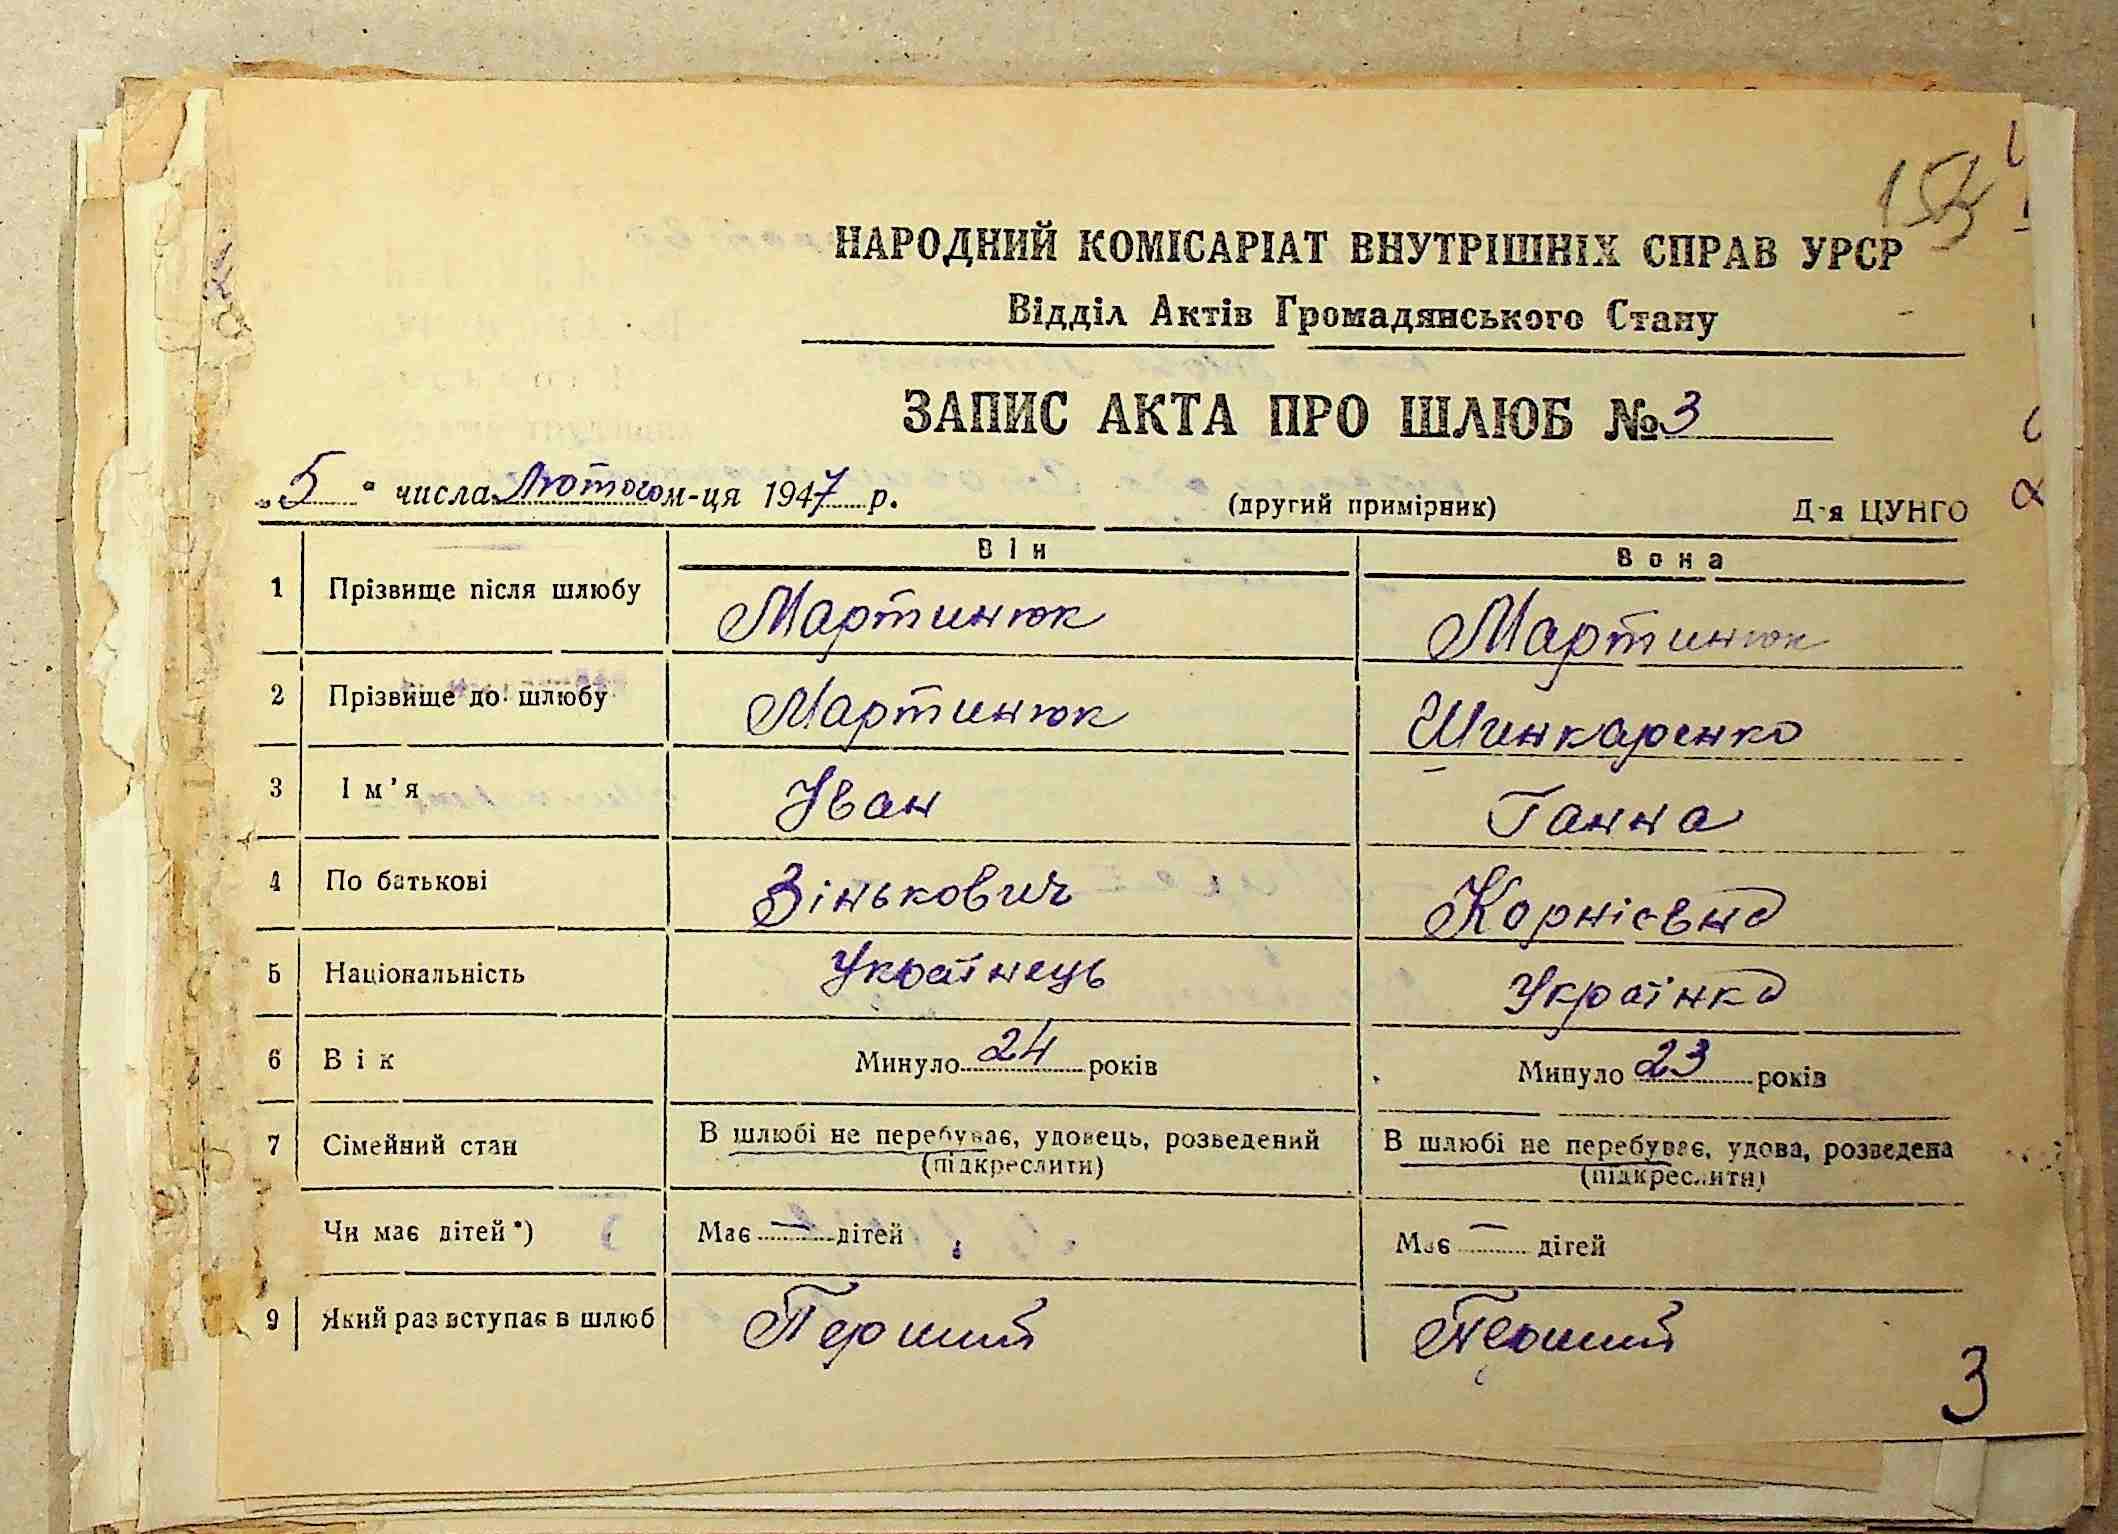 НАРОДНИЙ КОМІСАРІАТ ВНУТРІШНІХ СПРАВ УРСР
Відділ Актів Громадянського Стану
ЗАПИС АКТА ПРО ШЛЮБ № 3
„5“ числа Лютого м-ця 1947 р. (другий примірник) Д-я ЦУНГО
Він Вона
1 Прізвище після шлюбу Мартинюк Мартинюк
2 Прізвище до шлюбу Мартинюк Шинкаренко
3 Ім’я Іван Ганна
4 По батькові Зінькович Корнієвна
5 Національність Українець Українка
6 Вік Минуло 24 років Минуло 23 років
7 Сімейний стан В шлюбі не перебуває, удовець, розведений В шлюбі не перебуває, удова, розведена
(підкреслити) (підкреслити)
Чи має дітей*) Має — дітей Має — дітей
9 Який раз вступає в шлюб Перший Перший
3